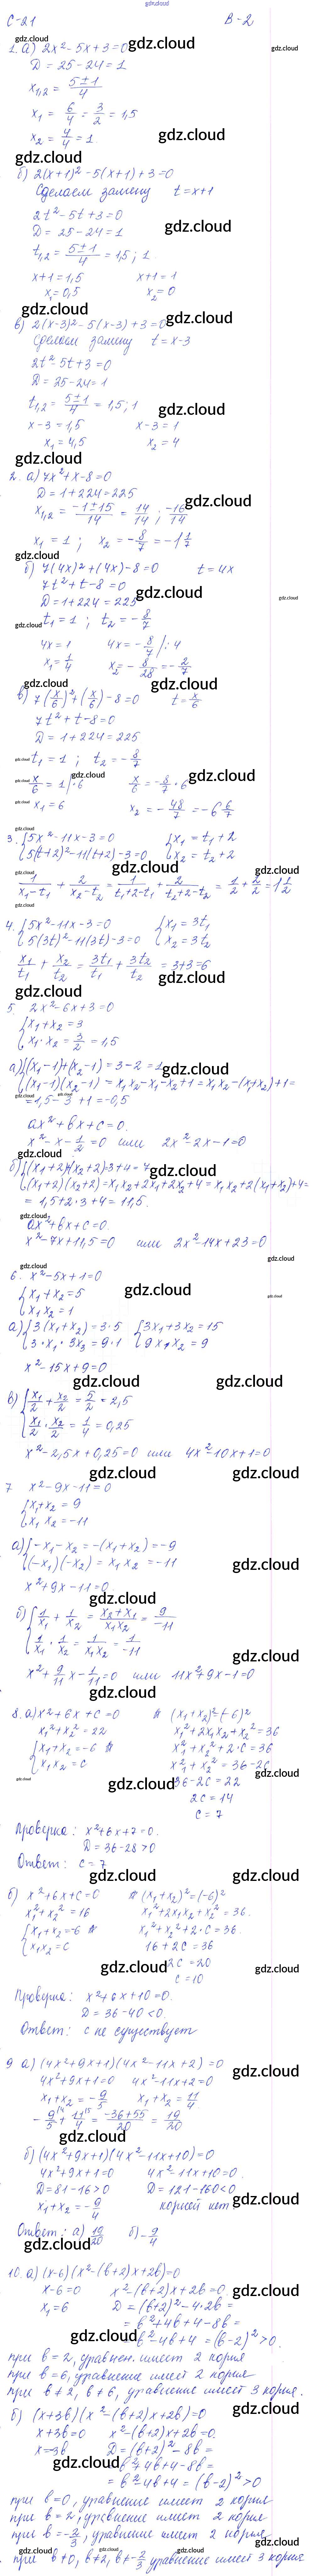 gdz.cloud
С-21 В-2
1. а) 2x² - 5x + 3 = 0
D = 25 - 24 = 1
x₁,₂ = (5±1)/4
x₁ = 6/4 = 3/2 = 1,5
x₂ = 4/4 = 1
б) 2(x+1)² - 5(x+1) + 3 = 0
Сделаем замену t = x+1
2t² - 5t + 3 = 0
D = 25 - 24 = 1
t₁,₂ = (5±1)/4 = 1,5; 1
x+1 = 1,5 x+1 = 1
x₁ = 0,5 x₂ = 0
в) 2(x-3)² - 5(x-3) + 3 = 0
Сделаем замену t = x-3
2t² - 5t + 3 = 0
D = 25 - 24 = 1
t₁,₂ = (5±1)/4 = 1,5; 1
x-3 = 1,5 x-3 = 1
x₁ = 4,5 x₂ = 4
2. а) 7x² + x - 8 = 0
D = 1 + 224 = 225
x₁,₂ = (-1±15)/14 = 14/14; -16/14
x₁ = 1; x₂ = -8/7 = -1 1/7
б) 7(4x)² + (4x) - 8 = 0 t = 4x
7t² + t - 8 = 0
D = 1 + 224 = 225
t₁ = 1; t₂ = -8/7
4x = 1 4x = -8/7 /:4
x₁ = 1/4 x₂ = -8/28 = -2/7
в) 7(x/6)² + (x/6) - 8 = 0 t = x/6
7t² + t - 8 = 0
D = 1 + 224 = 225
t₁ = 1; t₂ = -8/7
x/6 = 1 |·6 x/6 = -8/7 ·6
x₁ = 6 x₂ = -48/7 = -6 6/7
3. {5x² - 11x - 3 = 0 {x₁ = t₁ + 2
5(t+2)² - 11(t+2) - 3 = 0 x₂ = t₂ + 2
1/(x₁-t₁) + 2/(x₂-t₂) = 1/(t₁+2-t₁) + 2/(t₂+2-t₂) = 1/2 + 2/2 = 1 1/2
4. {5x² - 11x - 3 = 0 {x₁ = 3t₁
5(3t)² - 11(3t) - 3 = 0 x₂ = 3t₂
x₁/t₁ + x₂/t₂ = 3t₁/t₁ + 3t₂/t₂ = 3+3 = 6
5. 2x² - 6x + 3 = 0
{x₁ + x₂ = 3
x₁ · x₂ = 3/2 = 1,5
а) {(x₁-1)+(x₂-1) = 3-2 = 1
(x₁-1)(x₂-1) = x₁x₂ - x₁ - x₂ + 1 = x₁x₂ - (x₁+x₂) + 1 =
= 1,5 - 3 + 1 = -0,5
ax² + bx + c = 0.
x² - x - 1/2 = 0 или 2x² - 2x - 1 = 0
б) {(x₁+2)+(x₂+2) = 3+4 = 7
(x₁+2)(x₂+2) = x₁x₂ + 2x₁ + 2x₂ + 4 = x₁x₂ + 2(x₁+x₂) + 4 =
= 1,5 + 2·3 + 4 = 11,5.
ax² + bx + c = 0.
x² - 7x + 11,5 = 0 или 2x² - 14x + 23 = 0
6. x² - 5x + 1 = 0
{x₁ + x₂ = 5
x₁x₂ = 1
а) {3(x₁+x₂) = 3·5 {3x₁ + 3x₂ = 15
3·x₁·3x₂ = 9·1 9x₁x₂ = 9
x² - 15x + 9 = 0
в) {x₁/2 + x₂/2 = 5/2 = 2,5
x₁/2 · x₂/2 = 1/4 = 0,25
x² - 2,5x + 0,25 = 0 или 4x² - 10x + 1 = 0
7 x² - 9x - 11 = 0
{x₁ + x₂ = 9
x₁x₂ = -11
а) {-x₁ - x₂ = -(x₁+x₂) = -9
(-x₁)(-x₂) = x₁x₂ = -11
x² + 9x - 11 = 0
б) {1/x₁ + 1/x₂ = (x₂+x₁)/(x₁x₂) = 9/-11
1/x₁ · 1/x₂ = 1/(x₁x₂) = 1/-11
x² + 9/11 x - 1/11 = 0 или 11x² + 9x - 1 = 0
8. а) x² + 6x + c = 0 (x₁+x₂)² = (-6)²
x₁² + x₂² = 22 x₁² + 2x₁x₂ + x₂² = 36
{x₁ + x₂ = -6 x₁² + x₂² + 2·c = 36
x₁x₂ = c x₁² + x₂² = 36 - 2c
36 - 2c = 22
2c = 14
c = 7
Проверка: x² + 6x + 7 = 0.
D = 36 - 28 > 0
Ответ: c = 7
б) x² + 6x + c = 0 (x₁+x₂)² = (-6)²
x₁² + x₂² = 16 x₁² + 2x₁x₂ + x₂² = 36.
{x₁ + x₂ = -6 x₁² + x₂² + 2·c = 36.
x₁x₂ = c 16 + 2c = 36
2c = 20
c = 10
Проверка: x² + 6x + 10 = 0.
D = 36 - 40 < 0.
Ответ: c не существует
9 а) (4x² + 9x + 1)(4x² - 11x + 2) = 0
4x² + 9x + 1 = 0 4x² - 11x + 2 = 0
x₁ + x₂ = -9/5 x₁ + x₂ = 11/4
-9/5 + 11/4 = (-36+55)/20 = 19/20
б) (4x² + 9x + 1)(4x² - 11x + 10) = 0
4x² + 9x + 1 = 0 4x² - 11x + 10 = 0.
D = 81 - 16 > 0 D = 121 - 160 < 0
x₁ + x₂ = -9/4 корней нет
Ответ: а) 19/20 б) -9/4
10. а) (x-6)(x² - (b+2)x + 2b) = 0
x - 6 = 0 x² - (b+2)x + 2b = 0.
x₁ = 6 D = (b+2)² - 4·2b =
= b² + 4b + 4 - 8b =
= b² - 4b + 4 = (b-2)² > 0.
при b = 2, уравнен. имеет 2 корня
при b = 6, уравнение имеет 2 корня
при b ≠ 2, b ≠ 6, уравнение имеет 3 корня.
б) (x+3b)(x² - (b+2)x + 2b) = 0
x + 3b = 0 x² - (b+2)x + 2b = 0.
x = -3b D = (b+2)² - 8b =
= b² + 4b + 4 - 8b =
= b² - 4b + 4 = (b-2)² > 0
при b = 0, уравнение имеет 2 корня
при b = 2, уравнение имеет 2 корня
при b = -2/3, уравнение имеет 2 корня
при b ≠ 0, b ≠ 2, b ≠ -2/3 уравнение имеет 3 корня